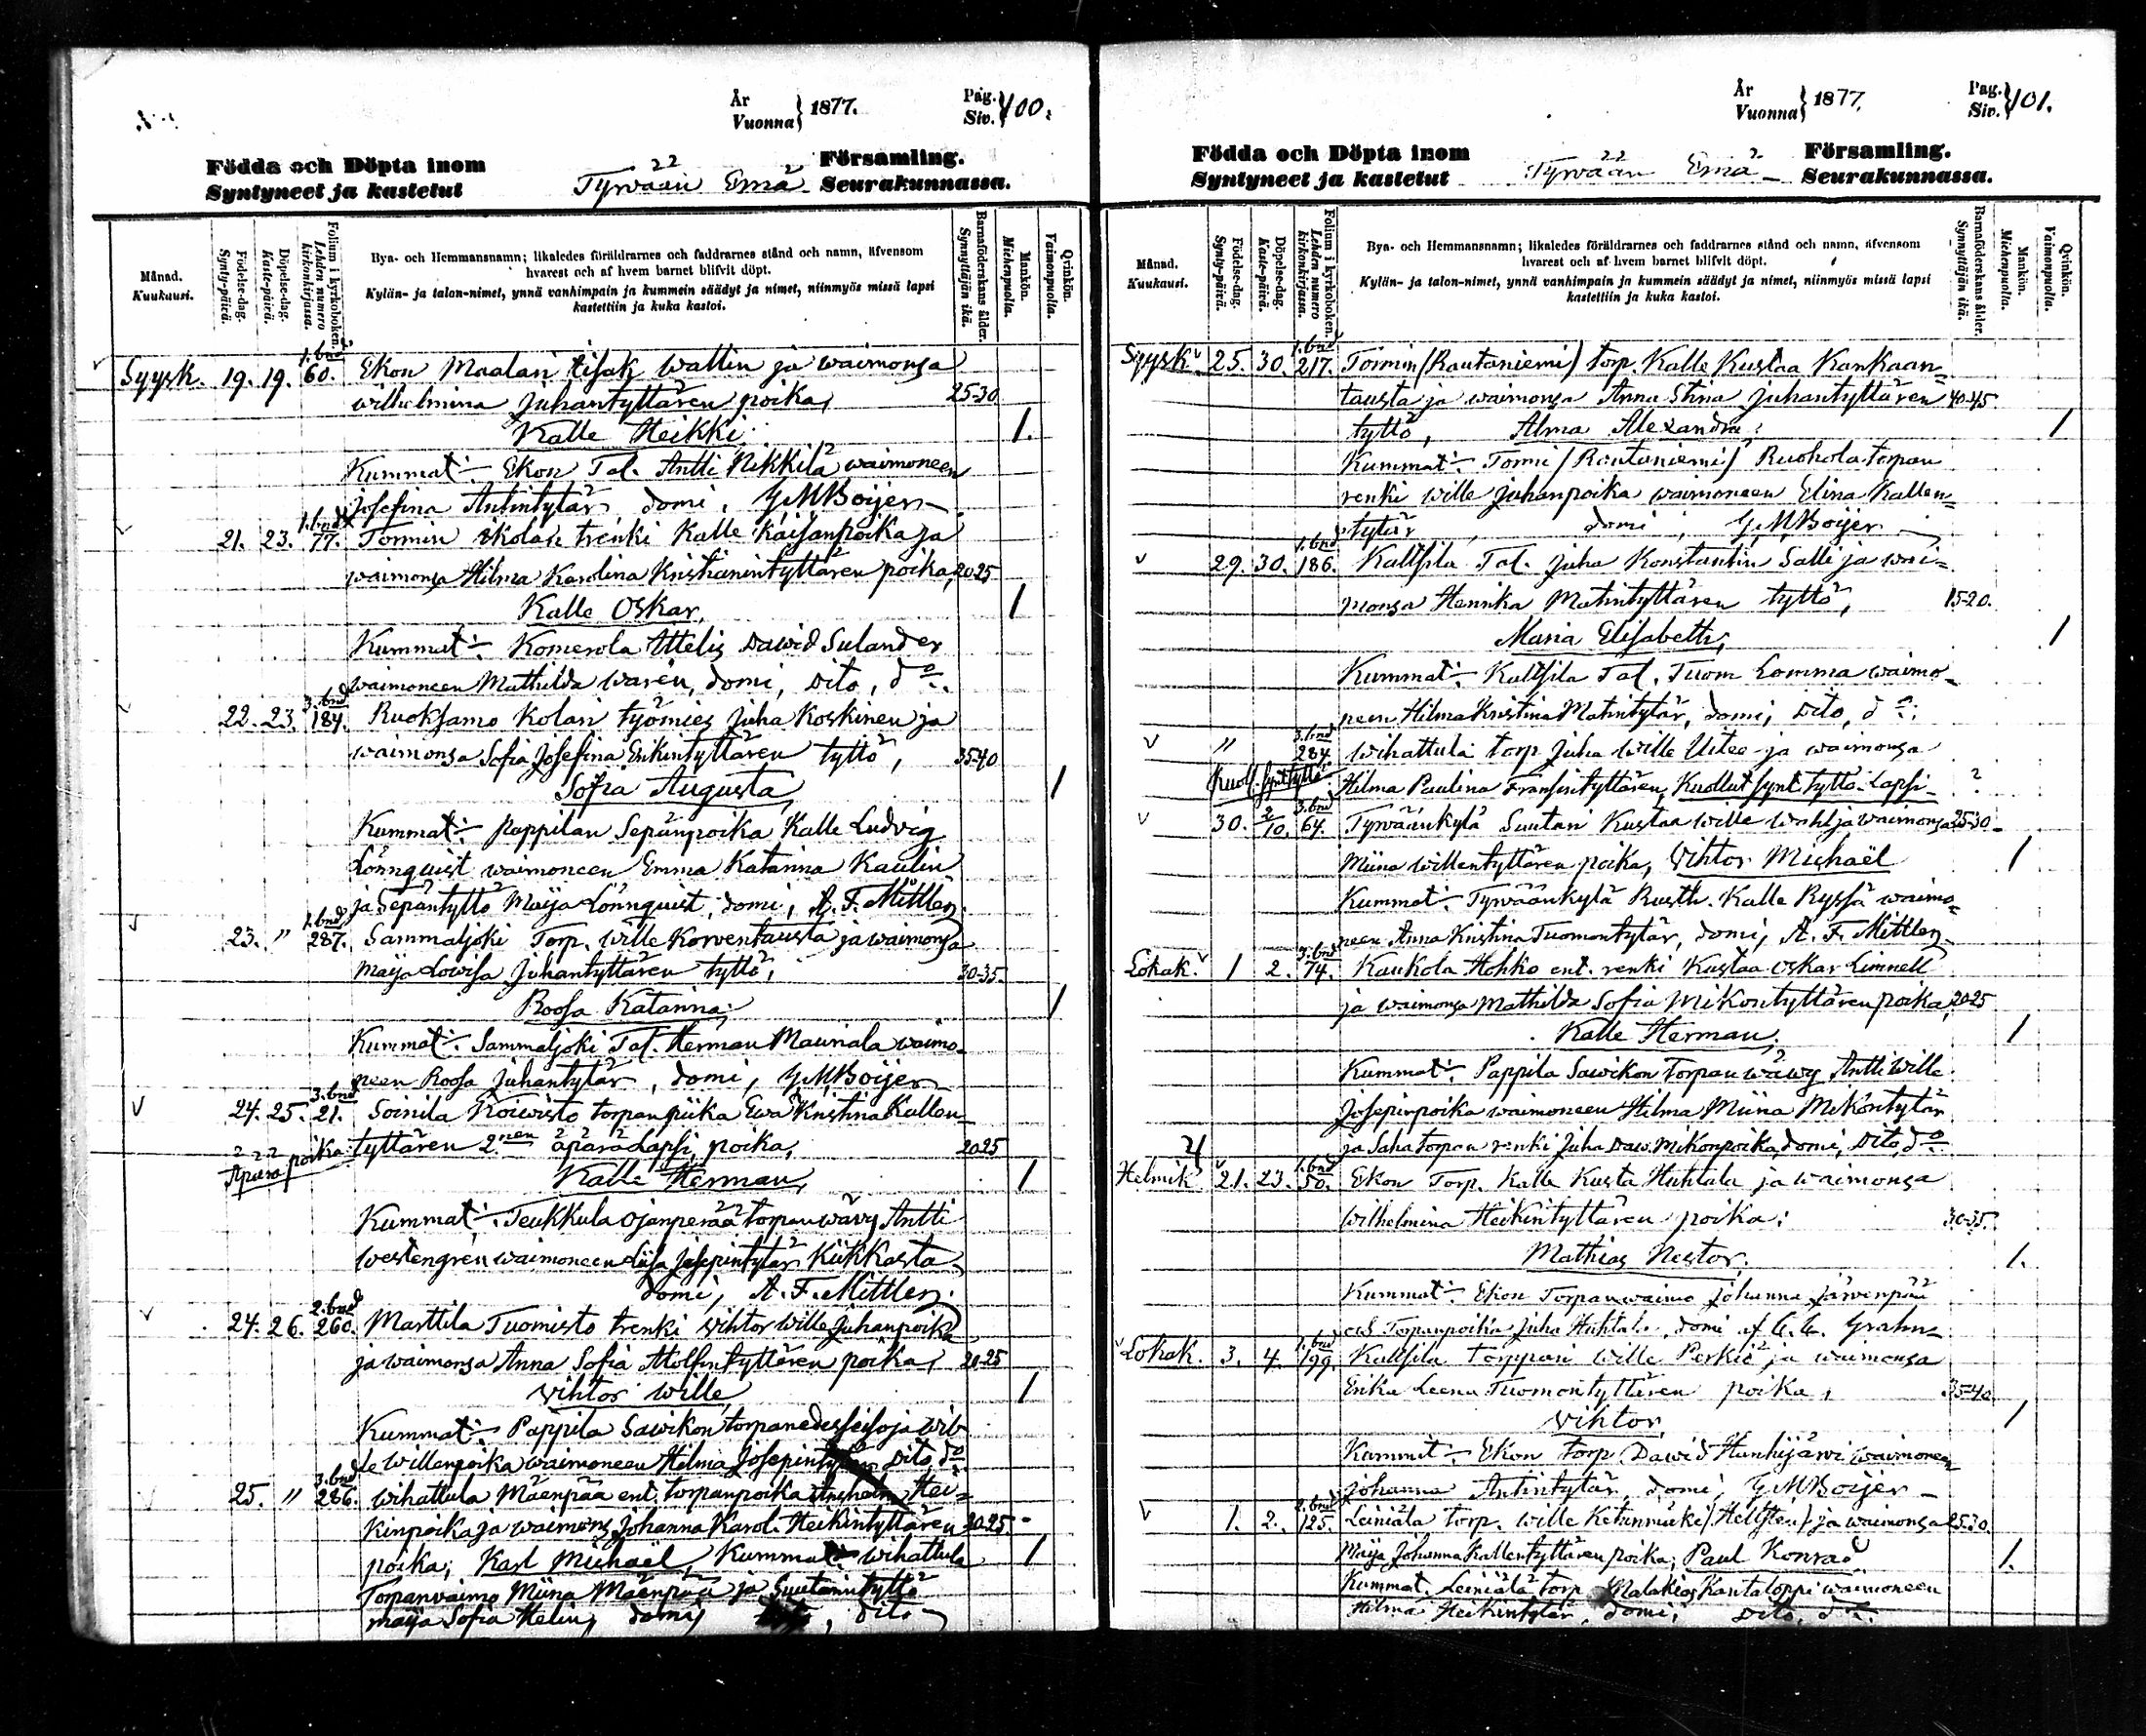 År
Vuonna} 1877.
Pag.
Siv.} 400.
Födda och Döpta inom
Syntyneet ja kastetut
Tyrvään Emä
Församling.
Seurakunnassa.
Månad.
Kuukausi.
Födelse-dag.
Synty-päivä.
Döpelse-dag.
Kaste-päivä.
Folium i kyrkoboken.
Lehden numero
kirkonkirjassa.
Bya- och Hemmansnamn; likaledes föräldrarnes och faddrarnes stånd och namn, äfvensom
hvarest och af hvem barnet blifvit döpt.
Kylän- ja talon-nimet, ynnä vanhimpain ja kummein säädyt ja nimet, niinmyös missä lapsi
kastettiin ja kuka kastoi.
Barnaföderskans ålder.
Synnyttäjän ikä.
Mankön.
Miehenpuolta.
Qvinkön.
Vaimonpuolta.
Syysk. 19. 19. 1.bnd 60. Ekon Maalari Iisak Wallin ja waimonsa
wilhelmina Juhantyttären poika, 25-30
Kalle Heikki. 1.
Kummat:- Ekon Tal. Antti Nikkilä waimoneen
Josefina Antintytär domi, G.M.Boijer-
21. 23. 1.bnd 77. Tormin trenki Kalle Kaisanpoika ja
waimonsa Hilma Karolina Kristianintyttären poika, 20-25
Kalle Oskar, 1
Kummat:- Komerola Dawid Sulander
waimoneen Mathilda waren, domi, Dito, do.
22. 23. 3.bnd 184. Ruoksamo Kolari työmies Juha Koskinen ja
waimonsa Sofia Josefina Erikintyttären tyttö, 35-40
Sofia Augusta, 1
Kummat:- Pappilan Sepänpoika Kalle Ludvig
Lönnquist waimoneen Emma Katarina Kaulin
ja Sepäntyttö Maija Lönnquist, domi, A.F.Mittler.
23. " 1.bnd 287. Sammaljoki Torp. Wille Korventausta ja waimonsa
Maija Lowisa Juhantyttären tyttö, 30-35.
Roosa Katarina; 1
Kummat:- Sammaljoki Tal. Herman Mauriala waimo-
neen Roosa Juhantytär, domi, G.M.Boijer-
24. 25. 3.bnd 21. Soinila Koiwisto torpan piika Ewa Kristina Kallen-
Äpärä poika tyttären 2.nen äpärä Lapsi, poika, 20-25
Kalle Herman, 1
Kummat:- Teukkula Ojanperää torpan wävy Antti
Westengren waimoneen Liisa Josepintytär Kiikkasta
domi, A.F.Mittler.
24. 26. 2.bnd 260. Marttila Tuomisto trenki Wihtor Wille Juhanpoika
ja waimonsa Anna Sofia Adolfintyttären poika, 20-25
Wihtor Wille, 1
Kummat:- Pappila Sawikon torpan Wil-
le Willenpoika waimoneen Hilma Josepintytär Dito, do.
25. " 3.bnd 286. Wihattula Mäenpää ent. torpanpoika Hei-
kinpoika ja waimons Johanna Karol. Heikintyttären 20-25.
poika; Karl Michaël, Kummat:- Wihattula 1
Torpanvaimo Miina Mäenpää ja Suutarintyttö
Maija Sofia Helin, domi, Dito-
År
Vuonna} 1877.
Pag.
Siv.} 401.
Födda och Döpta inom
Syntyneet ja kastetut
Tyrvään Emä-
Församling.
Seurakunnassa.
Månad.
Kuukausi.
Födelse-dag.
Synty-päivä.
Döpelse-dag.
Kaste-päivä.
Folium i kyrkoboken.
Lehden numero
kirkonkirjassa.
Bya- och Hemmansnamn; likaledes föräldrarnes och faddrarnes stånd och namn, äfvensom
hvarest och af hvem barnet blifvit döpt.
Kylän- ja talon-nimet, ynnä vanhimpain ja kummein säädyt ja nimet, niinmyös missä lapsi
kastettiin ja kuka kastoi.
Barnaföderskans ålder.
Synnyttäjän ikä.
Mankön.
Miehenpuolta.
Qvinkön.
Vaimonpuolta.
Syysk. 25. 30. 1.bnd 217. Tormin (Rautaniemi) torp. Kalle Kustaa Kankaan-
tausta ja waimonsa Anna Stina Juhantyttären 40-45.
tyttö, Alma Alexandra. 1
Kummat:- Tormi (Rautaniemi) Ruohola torpan
renki Wille Juhanpoika waimoneen Elina Kallen-
tytär, domi, G.M.Boijer-
29. 30. 1.bnd 186. Kallsila Tal. Juha Konstantin Salli ja wai-
monsa Henrika Matintyttären tyttö, 15-20.
Maria Elisabeth; 1
Kummat:- Kallsila Tal. Tuom Lomma waimo-
neen Hilma Kristina Matintytär, domi, Dito, do.
" 3.bnd 284. Wihattula torp Juha Wille Uitee ja waimonsa
Kuoll. synt tyttö Hilma Paulina Fransintyttären, Kuollut synt tyttö-Lapsi- ?
30. 2/10. 3.bnd 64. Tyrväänkylä Suutari Kustaa Wille Wahl ja waimonsa 25-30.
Miina Willentyttären poika, Wihtor Michaël 1
Kummat:- Tyrväänkylä Rusth. Kalle Ryssä waimo-
neen Anna Kristina Tuomontytär, domi, A.F.Mittler-
Lokak. 1 2. 3.bnd 74. Kaukola Hohko ent. renki Kustaa Oskar Limnell
ja waimonsa Mathilda Sofia Mikontyttären poika, 20-25
Kalle Herman; 1
Kummat:- Pappila Sawikon torpan wäwy Antti Wille
Josepinpoika waimoneen Hilma Miina Mikontytär
ja Saha torpan renki Juha Daw. Mikonpoika, domi, Dito, do.
Helmik. 21. 23. 1.bnd 50. Ekon Torp. Kalle Kusta Huhtala ja waimonsa
Wilhelmina Heikintyttären poika; 30-35.
Mathias Nestor. 1.
Kummat:- Ekon Torpanwaimo Johanna Järvenpää
och Torpanpoika Juha Huhtala, domi af Grahn-
Lokak. 3. 4. 1.bnd 199. Kallsila Torppari Wille Perkiö ja waimonsa
Erika Leena Tuomontyttären poika, 35-40
Wihtor 1
Kummit:- Ekon torp Dawid Hanhijärvi waimoneen
Johanna Antintytär, domi, G.M.Boijer-
1. 2. 2.bnd 125. Leiniälä torp. Wille Ketunmäki (Hellsten) ja waimonsa 25-30.
Maija Johanna Kallentyttären poika, Paul Konrad 1.
Kummat. Leiniälä torp Malakias Kantaloppi waimoneen
Hilma Heikintytär, domi, Dito, do.